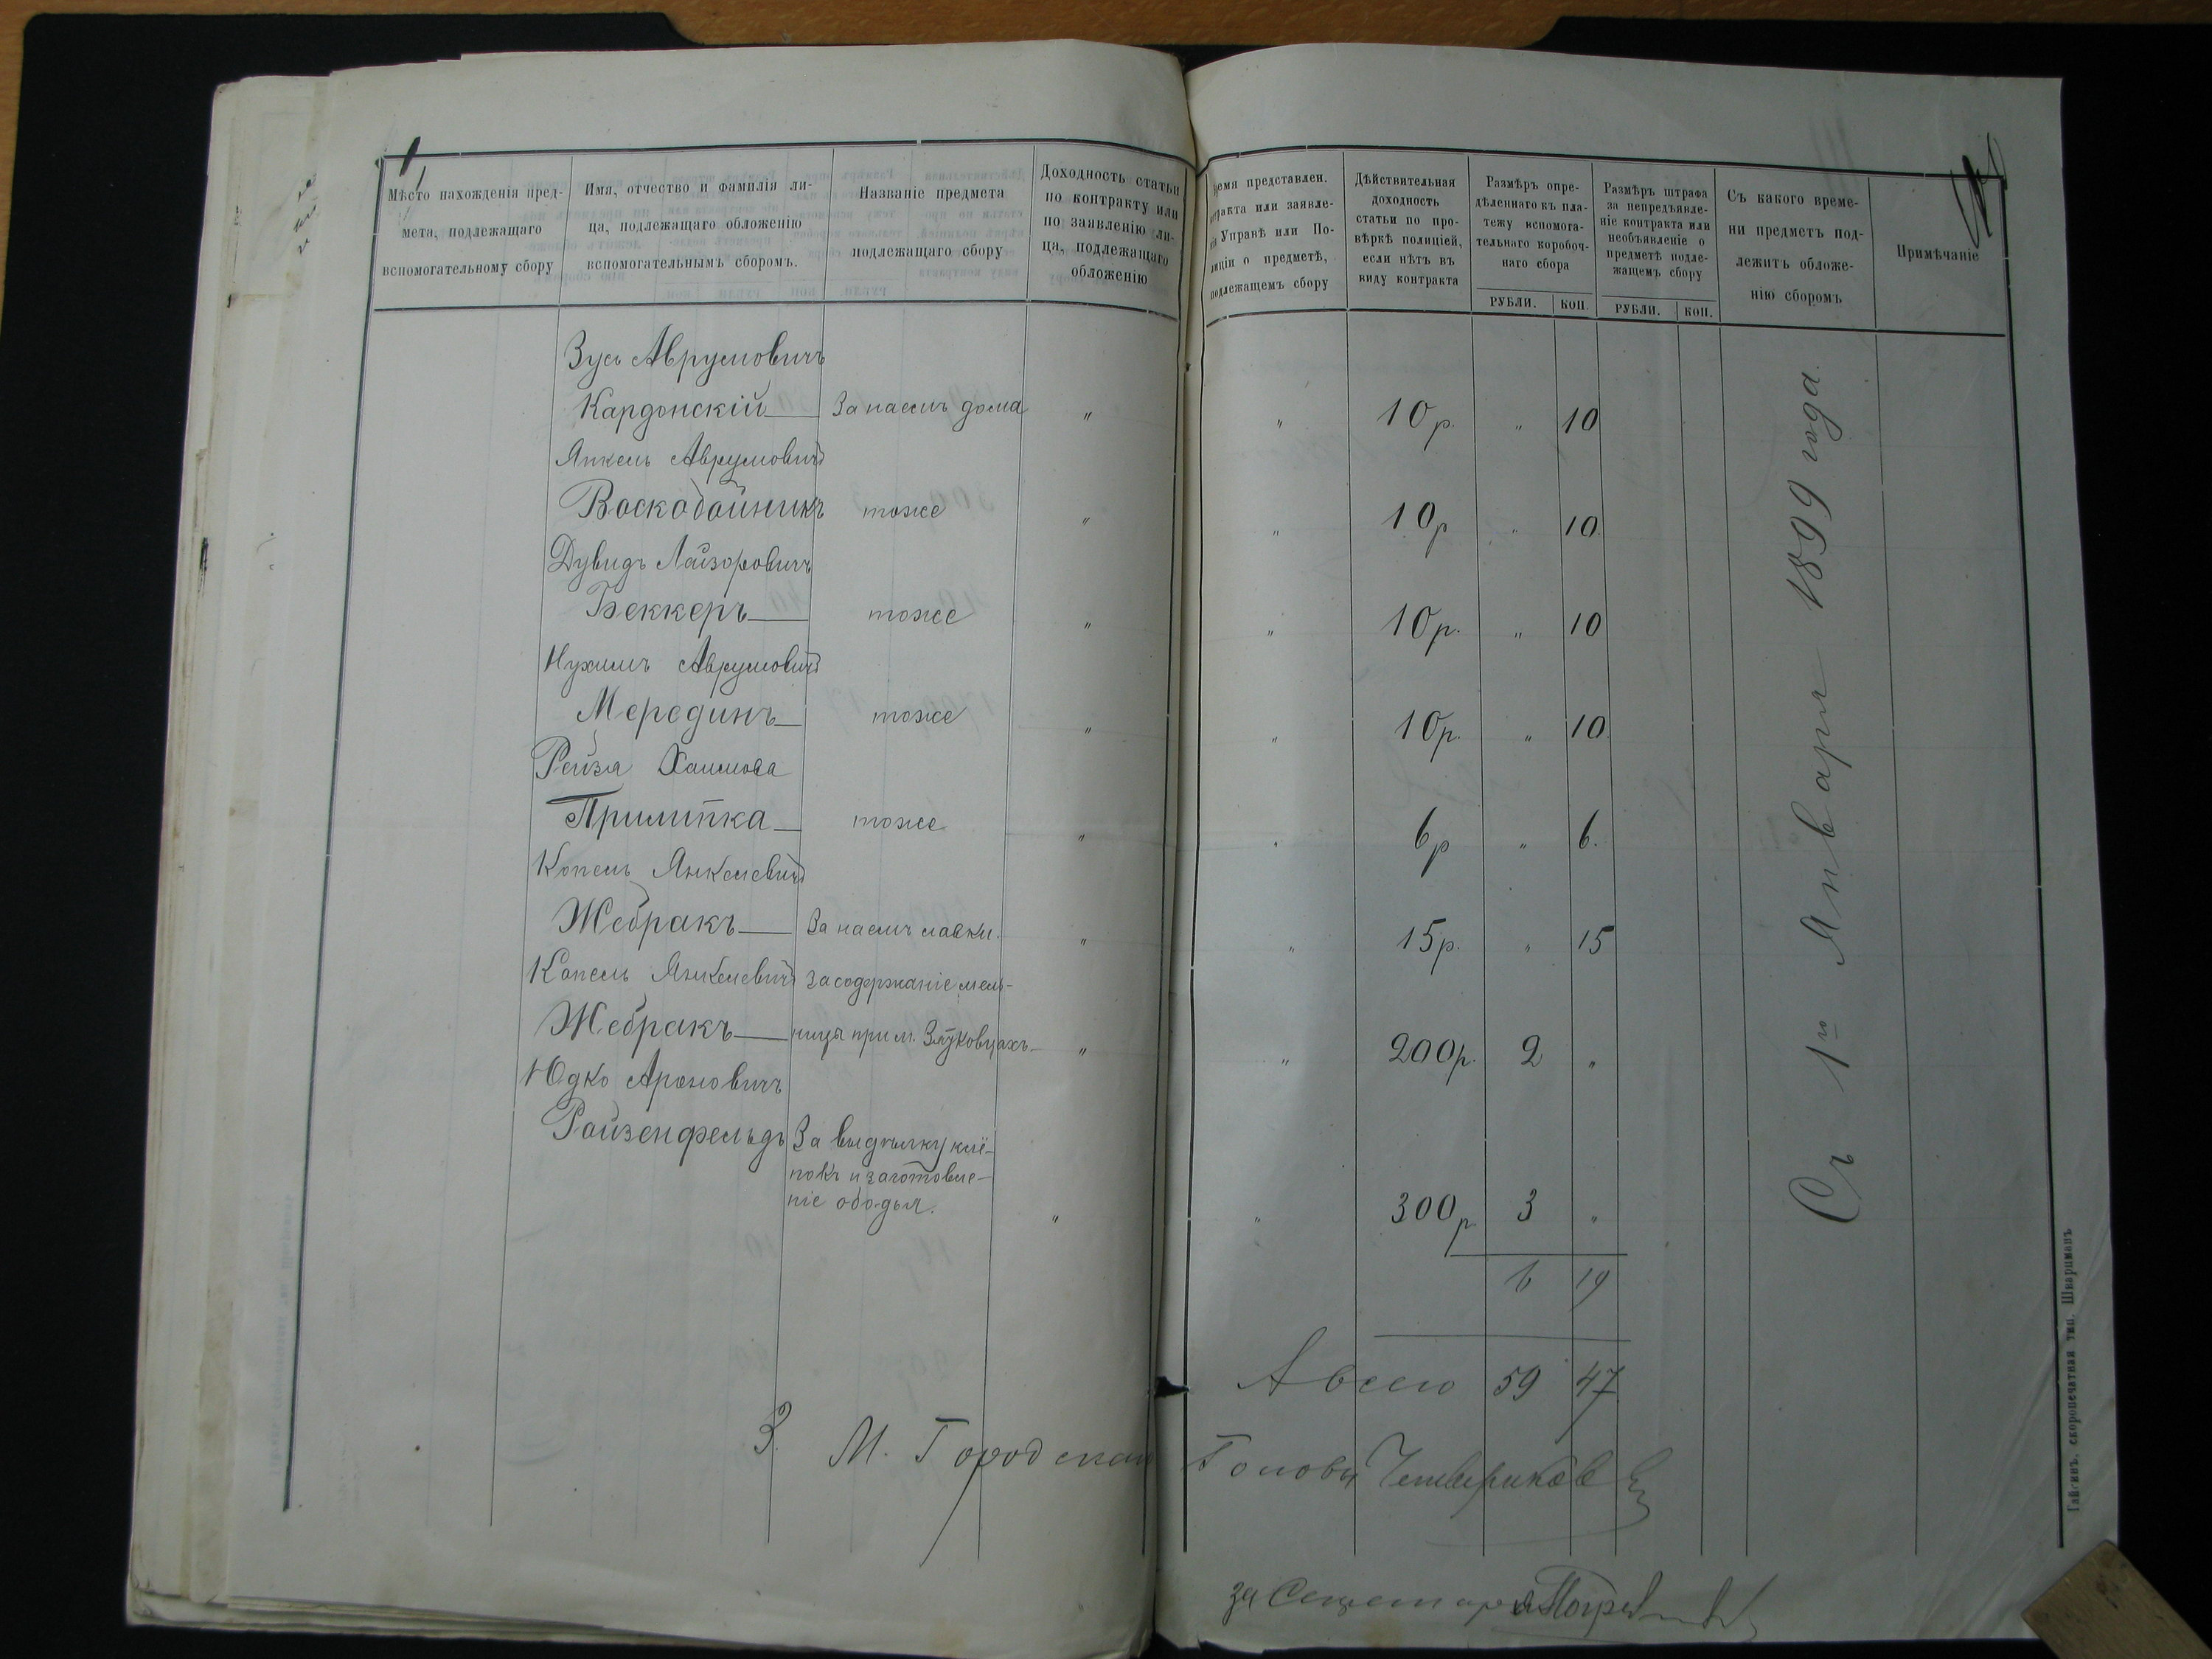 Мѣсто нахожденія пред-
мета, подлежащаго
вспомогательному сбору
Имя, отчество и фамилія ли-
ца, подлежащаго обложенію
вспомогательнымъ сборомъ.
Названіе предмета
подлежащаго сбору
Доходность статьи
по контракту или
по заявленію ли-
ца, подлежащаго
обложенію
ремя представлен.
тракта или заявле-
Управѣ или По-
лиціи о предметѣ,
подлежащемъ сбору
Дѣйствительная
доходность
статьи по про-
вѣркѣ полиціей,
если нѣтъ въ
виду контракта
Размѣръ опре-
дѣленнаго къ пла-
тежу вспомога-
тельнаго коробоч-
наго сбора
РУБЛИ. КОП.
Размѣръ штрафа
за непредъявле-
ніе контракта или
необъявленіе о
предметѣ подле-
жащемъ сбору
РУБЛИ. КОП.
Съ какого време-
ни предметъ под-
лежитъ обложе-
нію сборомъ
Примѣчаніе
Зусь Аврумовичъ
Кардонскій За наемъ дома " " 10 р. " 10
Янкель Аврумовичъ
Воскобойникъ тоже " " 10 р " 10
Дувидъ Лайзоровичъ
Беккеръ тоже " " 10 р. " 10
Нухимъ Аврумовичъ
Мерединъ тоже " " 10 р. " 10
Рейзя Хаимова
Прилипка тоже " " 6 р " 6.
Копель Янкелевичъ
Жебракъ За наемъ лавки. " " 15 р. " 15
Копель Янкелевичъ за содержаніе мель-
Жебракъ ницы при м. " " 200 р. 2 "
Юдко Ароновичъ
Ройзенфельдъ За выдѣлку клё-
покъ и заготовле-
ніе ободья. " " 300 р 3 "
6 19
А всего 59 47
Съ 1го Января 1899 года.
З. М. Городскаго Головы Четвериков
за Секретаря
Гайсинъ, скоропечатная тип. Шкариманъ